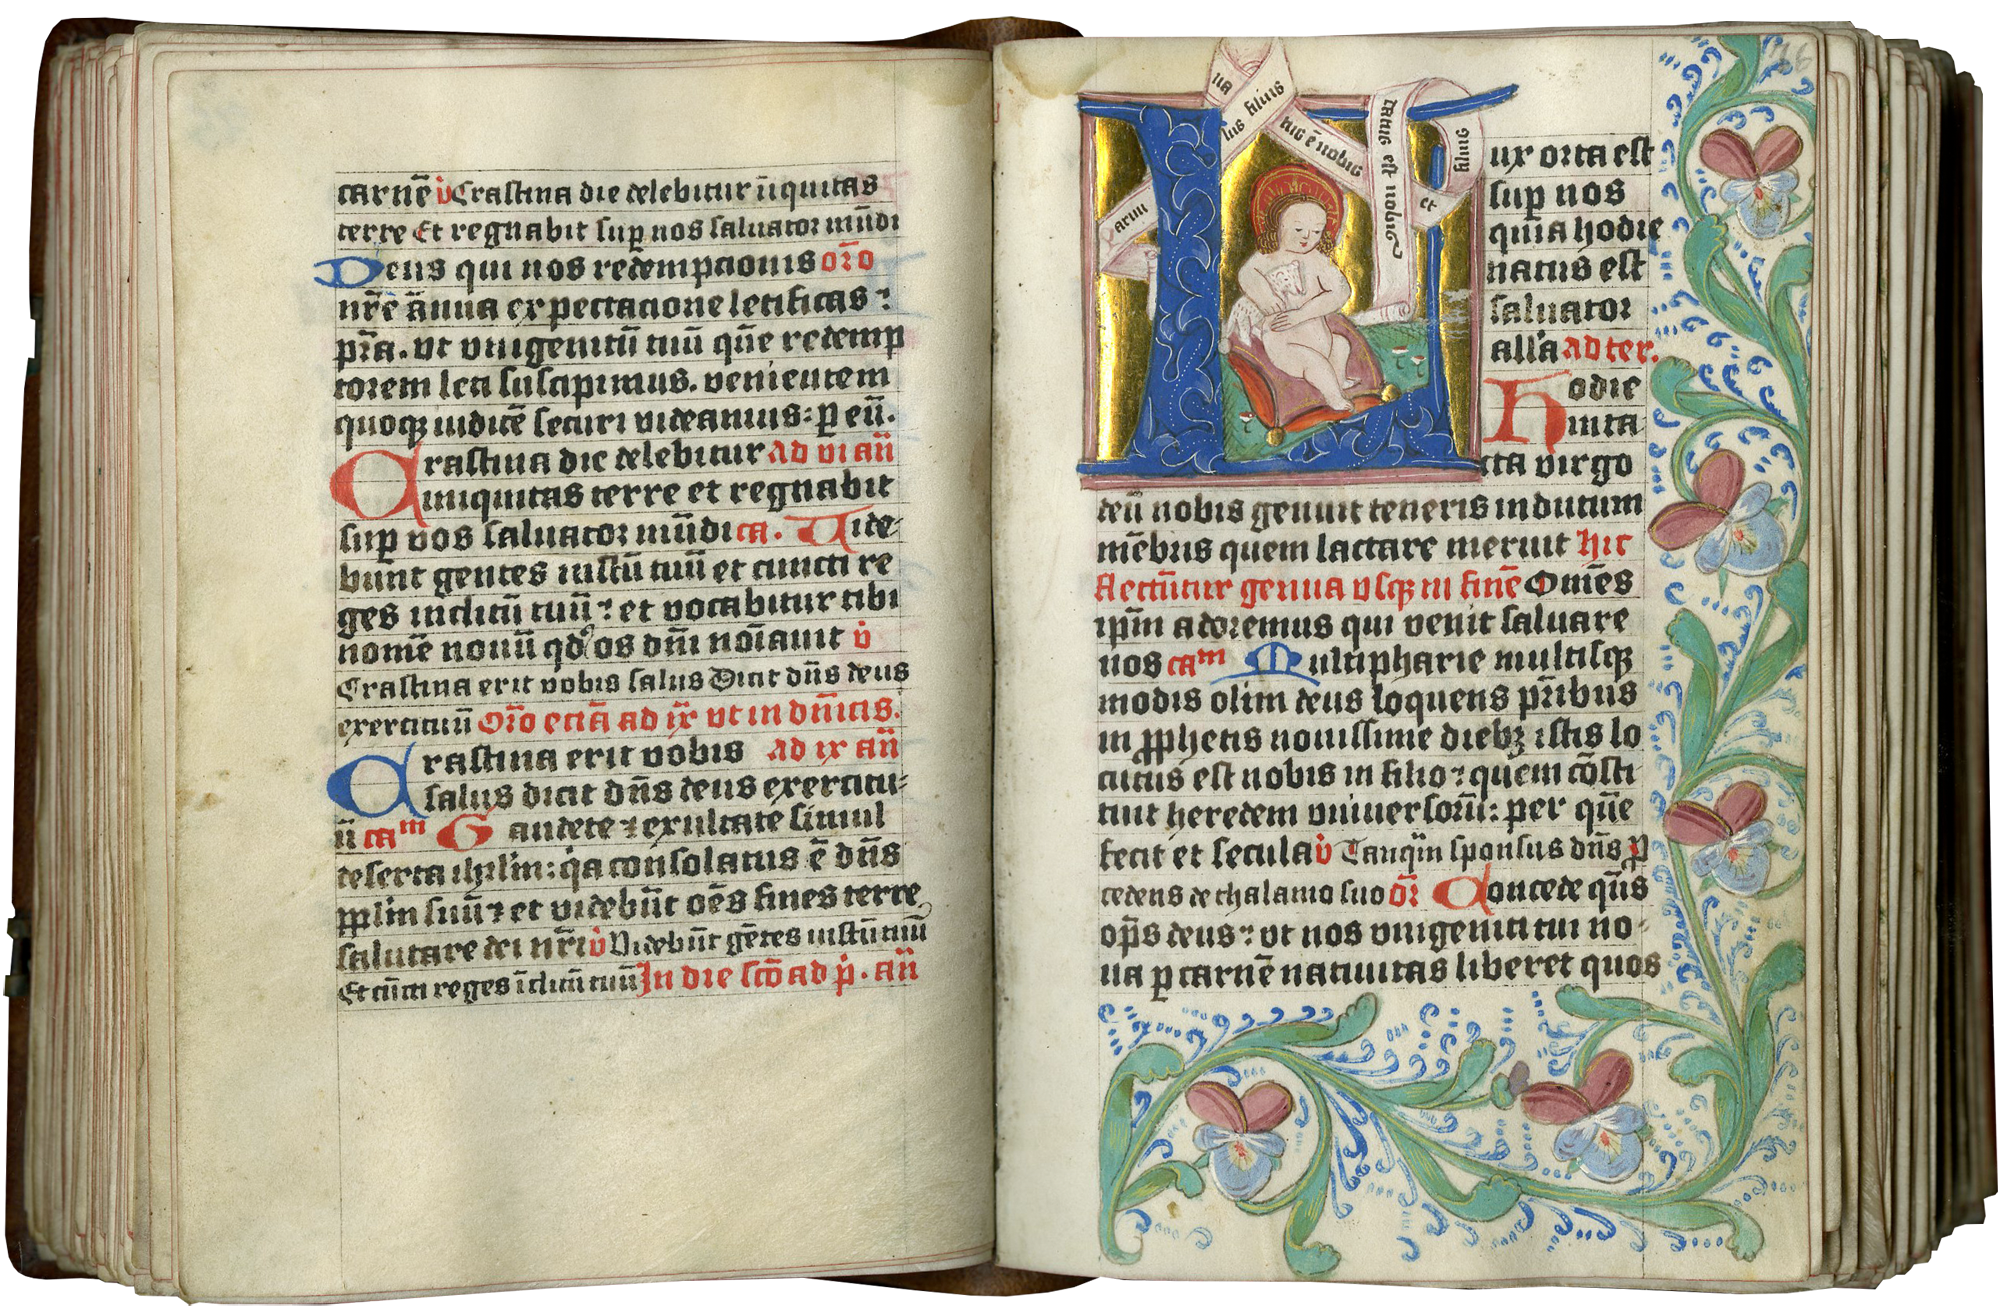 carnē v̄ Crastina die delebitur īiquitas
terre Et regnabit sup nos saluator mūdi
Deus qui nos redempcionis or̄o
nr̄e ānua expectacione letificas ⁊
pr̄a. vt vnigenitū tuū quē redemp
torem leti suscipimus. venientem
quoqꝫ iudicē securi videamus: p eū.
Crastina die delebitur ad vi an̄
iniquitas terre et regnabit
sup vos saluator mūdi ca. Vide-
bunt gentes iustū tuū et cuncti re
ges inclitū tuū ⁊ et vocabitur tibi
nomē nouū qd os dn̄i noīauit v̄
Crastina erit vobis salus Dicit dn̄s deus
exercituū Or̄o eciā ad ix vt in dn̄icis.
Crastina erit vobis ad ix an̄
salus dicit dn̄s deus exercitu-
ū caᵐ Gaudete ⁊ exultate simul
deserta ihrlm: qa consolatus ē dn̄s
pplm suū ⁊ et videbūt oēs fines terre
salutare dei nr̄i v̄ Videbūt gētes iustū tuū
Et cūcti reges īclitū tuū In die scō ad p̄. an̄
Lux orta est
sup nos
quia hodie
natus est
saluator
allīa ad ter.
Hodie
inta
cta virgo
deū nobis genuit teneris indutum
mēbris quem lactare meruit hic
flectūtur genua vsqꝫ in finē Omēs
ipm̄ adoremus qui venit saluare
nos caᵐ Multipharie multisqꝫ
modis olim deus loquens pr̄ibus
in pphetis nouissime diebꝫ istis lo
cutus est nobis in filio ⁊ quem cōsti
tuit heredem vniuersorū: per quē
fecit et secula v̄ Tanqm̄ sponsus dn̄s p
cedens de thalamo suo or̄ Concede qs̄
op̄s deus ⁊ vt nos vnigeniti tui no-
ua p carnē natiuitas liberet quos
paruu
lus filius
natus ē nobis
et
filius
datus est nobis